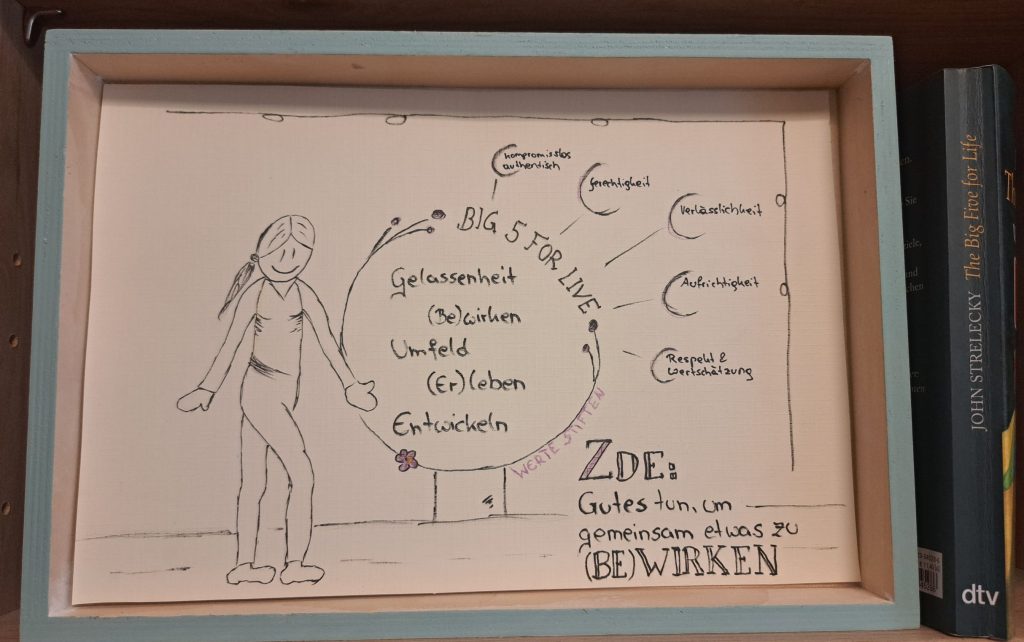 kompromisslos
authentisch
Gerechtigkeit
Verlässlichkeit
Aufrichtigkeit
Respekt &
Wertschätzung
BIG 5 FOR LIVE
Gelassenheit
(Be)wirken
Umfeld
(Er)leben
Entwickeln
WERTE STIFTEN
ZDE:
Gutes tun, um
gemeinsam etwas zu
(BE)WIRKEN
JOHN STRELECKY The Big Five for Life
dtv